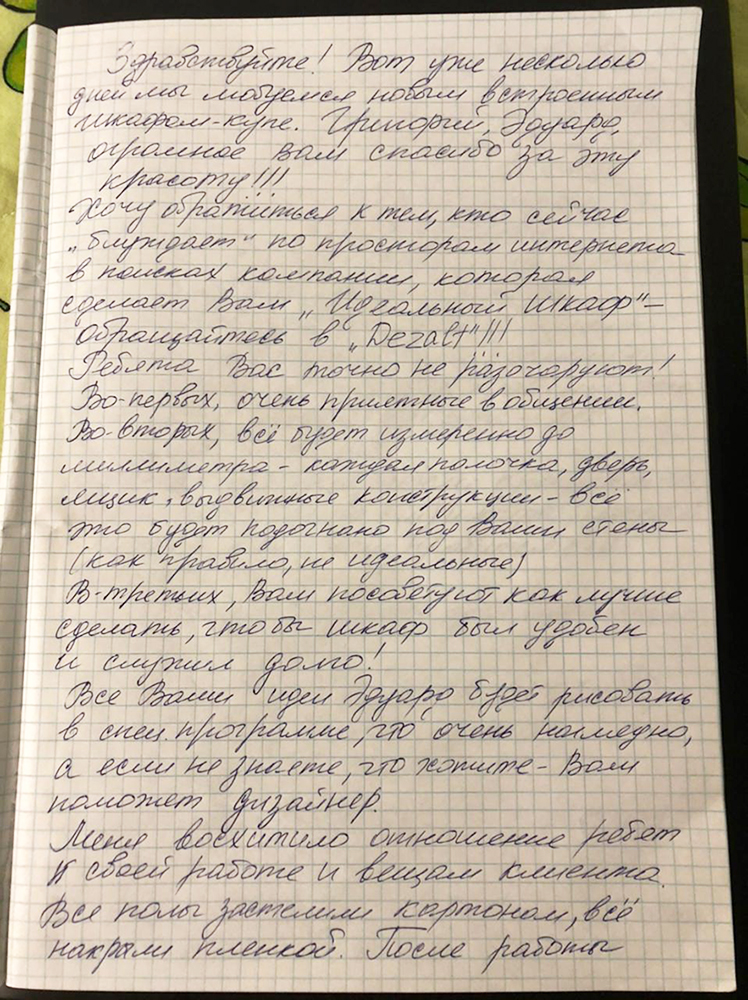 Здравствуйте! Вот уже несколько
дней мы любуемся новым встроенным
шкафом-купе. Григорий, Эдуард,
огромное вам спасибо за эту
красоту!!!
Хочу обратиться к тем, кто сейчас
„блуждает“ по просторам интернета
в поисках компании, которая
сделает Вам „Идеальный шкаф“-
обращайтесь в „Dezalt“!!!
Ребята Вас точно не разочаруют!
Во-первых, очень приятные в общении.
Во-вторых, всё будет измеренно до
миллиметра - каждая полочка, дверь,
ящик, выдвижные конструкции - всё
это будет подогнано под Ваши стены
(как правило, не идеальные)
В-третьих, Вам посоветуют как лучше
сделать, чтобы шкаф был удобен
и служил долго!
Все Ваши идеи Эдуард будет рисовать
в спец. программе, что очень наглядно,
а если не знаете, что хотите - Вам
поможет дизайнер.
Меня восхитило отношение ребят
к своей работе и вещам клиента.
Все полы застелили картоном, всё
накрыли пленкой. После работы